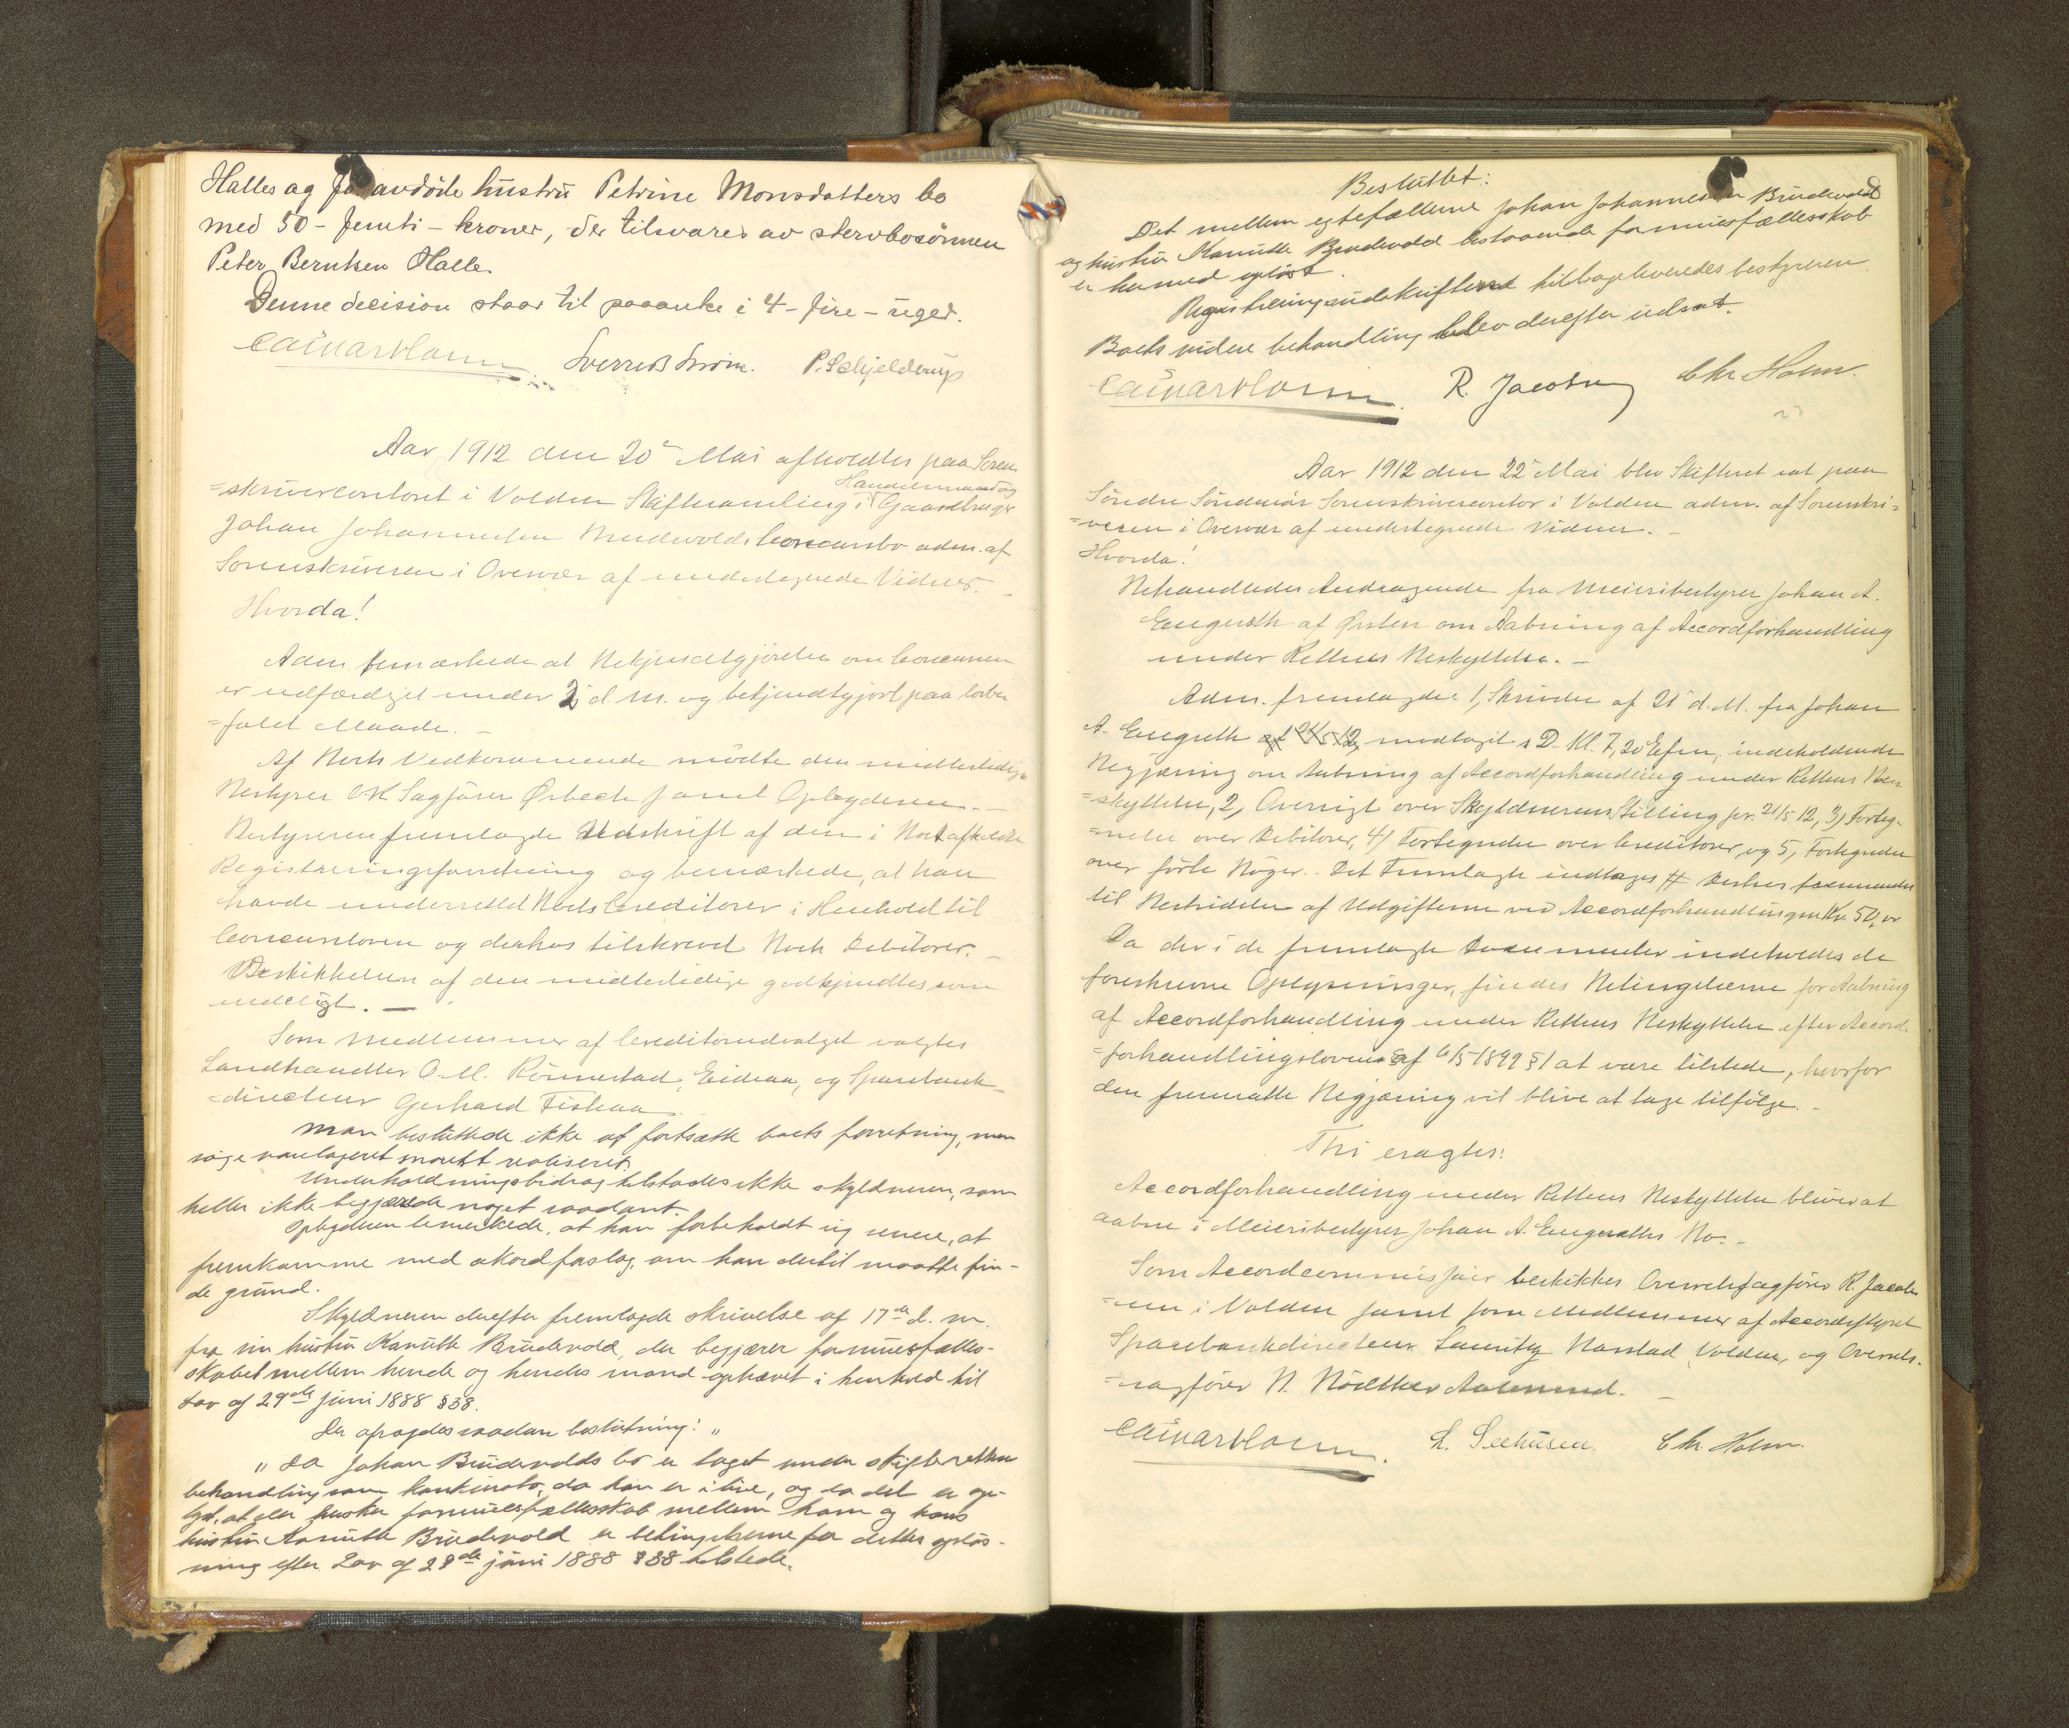 Halles og avdöde hustru Petrine Monsdatters bo
med 50 - femti - kroner, der tilsvares av stervbosönnen
Peter Berntsen Halle.
Denne decision staar til paaanke i 4 - fire - uger.
Sverre Ström. P. Schjelderup
Aar 1912 den 20de Mai afholdtes paa Soren=
=skrivercontoret i Volden Skiftesamling i Handelsmand og Gaardbruger
Johan Johannesen Brudevolds Concursbo adm. af
Sorenskriveren i Overvær af undertegnede Vidner.
Hvorda!
Adm. bemærkede at Bekjendtgjörelse om Concursen
er udfærdiget under 2 d.M. og bekjendtgjort paa lovbe=
=falet Maade. -
Af Boets Vedkommende mödte den midlertidige
Bestyrer O.R. Sagförer Örbeck samt Opbyderen. -
Bestyreren fremlagde Udskrift af den i Boet afholdte
Registreringsforretning og bemærkede, at han
havde underrettet Boets Creditorer i Henhold til
Concursloven og derhos tilskrevet Boets Debitorer. -
Beskikkelsen af den midlertidige godkjendtes som
endeligt. -
Som Medlemmer af Creditorudvalget valgtes
Landhandler O. M. Rönnestad, Eidsaa, og Sparebank=
=directeur Gerhard Fiskaa.
Man besluttede ikke at fortsætte boets forretning, men
söge varelageret snarest realiseret.
Underholdningsbidrag tilstodes ikke skyldneren, som
heller ikke begjærede noget saadant.
Opbyderen bemerkede, at han forbeholdt sig senere, at
fremkomme med akordforslag, om han dertil maatte fin-
de grund.
Skyldneren derefter fremlagde skrivelse af 17de d. m.
fra sin hustru Kanutte Brudevold, der begjærer formuesfælles-
skabet mellem hende og hendes mand ophævet i henhold til
lov af 29de juni 1888 § 38.
Der afsagdes saadan beslutning:
"Da Johan Brudevolds bo er taget under skifterettens
behandling som konkursbo, da han er i live, og da det er op-
lyst, at der hersker formuesfællesskab mellem ham og hans
hustru Kanutte Brudevold er betingelserne for dettes opløs-
ning efter Lov af 29de juni 1888 § 38 tilstede.
Besluttet:
Det mellem egtefællerne Johan Johannesen Brudevold
og hustru Kanutte Brudevold bestaaende formuesfællesskab
er hermed oplöst.
Registreringsudskriften tilbageleveredes bestyreren.
Boets videre behandling blev derefter udsat.
R. Jacobsen Chr. Holm.
Aar 1912 den 22de Mai blev Skifteret sat paa
Söndre Söndmör Sorenskrivercontor i Volden adm. af Sorenskri=
=veren i Overvær af undertegnede Vidner. -
Hvorda!
Behandledes Andragende fra Meieribestyrer Johan A.
Engeseth af Örsten om Aabning af Accordforhandling
under Rettens Beskyttelse. -
Adm. fremlagde: 1, Skrivelse af 21de d.M. fra Johan
A. Engeseth modtaget s.D. Kl. 7,20 Efm, indeholdende
Begjæring om Aabning af Accordforhandling under Rettens Be=
=skyttelse, 2, Oversigt over Skyldnerens Stilling pr. 21/5 12, 3, Forteg=
=nelse over Debitorer, 4, Fortegnelse over Creditorer og 5, Fortegnelse
over förte Böger. Det Fremlagte indtages # Derhos fremsendes
til Bestridelse af Udgifterne ved Accordforhandlingen Kr. 50,00
Da der i de fremlagte Documenter indeholdes de
foreskrevne Oplysninger, findes Betingelserne for Aabning
af Accordforhandling under Rettens Beskyttelse efter Accord=
=forhandlingsloven af 6/5 1899 § 1 at være tilstede, hvorfor
den fremsatte Begjæring vil blive at tage tilfölge. -
Thi eragtes:
Accordforhandling under Rettens Beskyttelse bliver at
aabne i Meieribestyrer Johan A. Engeseths Bo. -
Som Accordcommissair beskikkes Overretssagförer R. Jacob=
=sen i Volden samt som Medlemmer af Accordstyret
Sparebankdirecteur Lauritz Barstad, Volden, og Overrets=
=sagförer Aalesund. -
L. Seehusen. Chr. Holm.